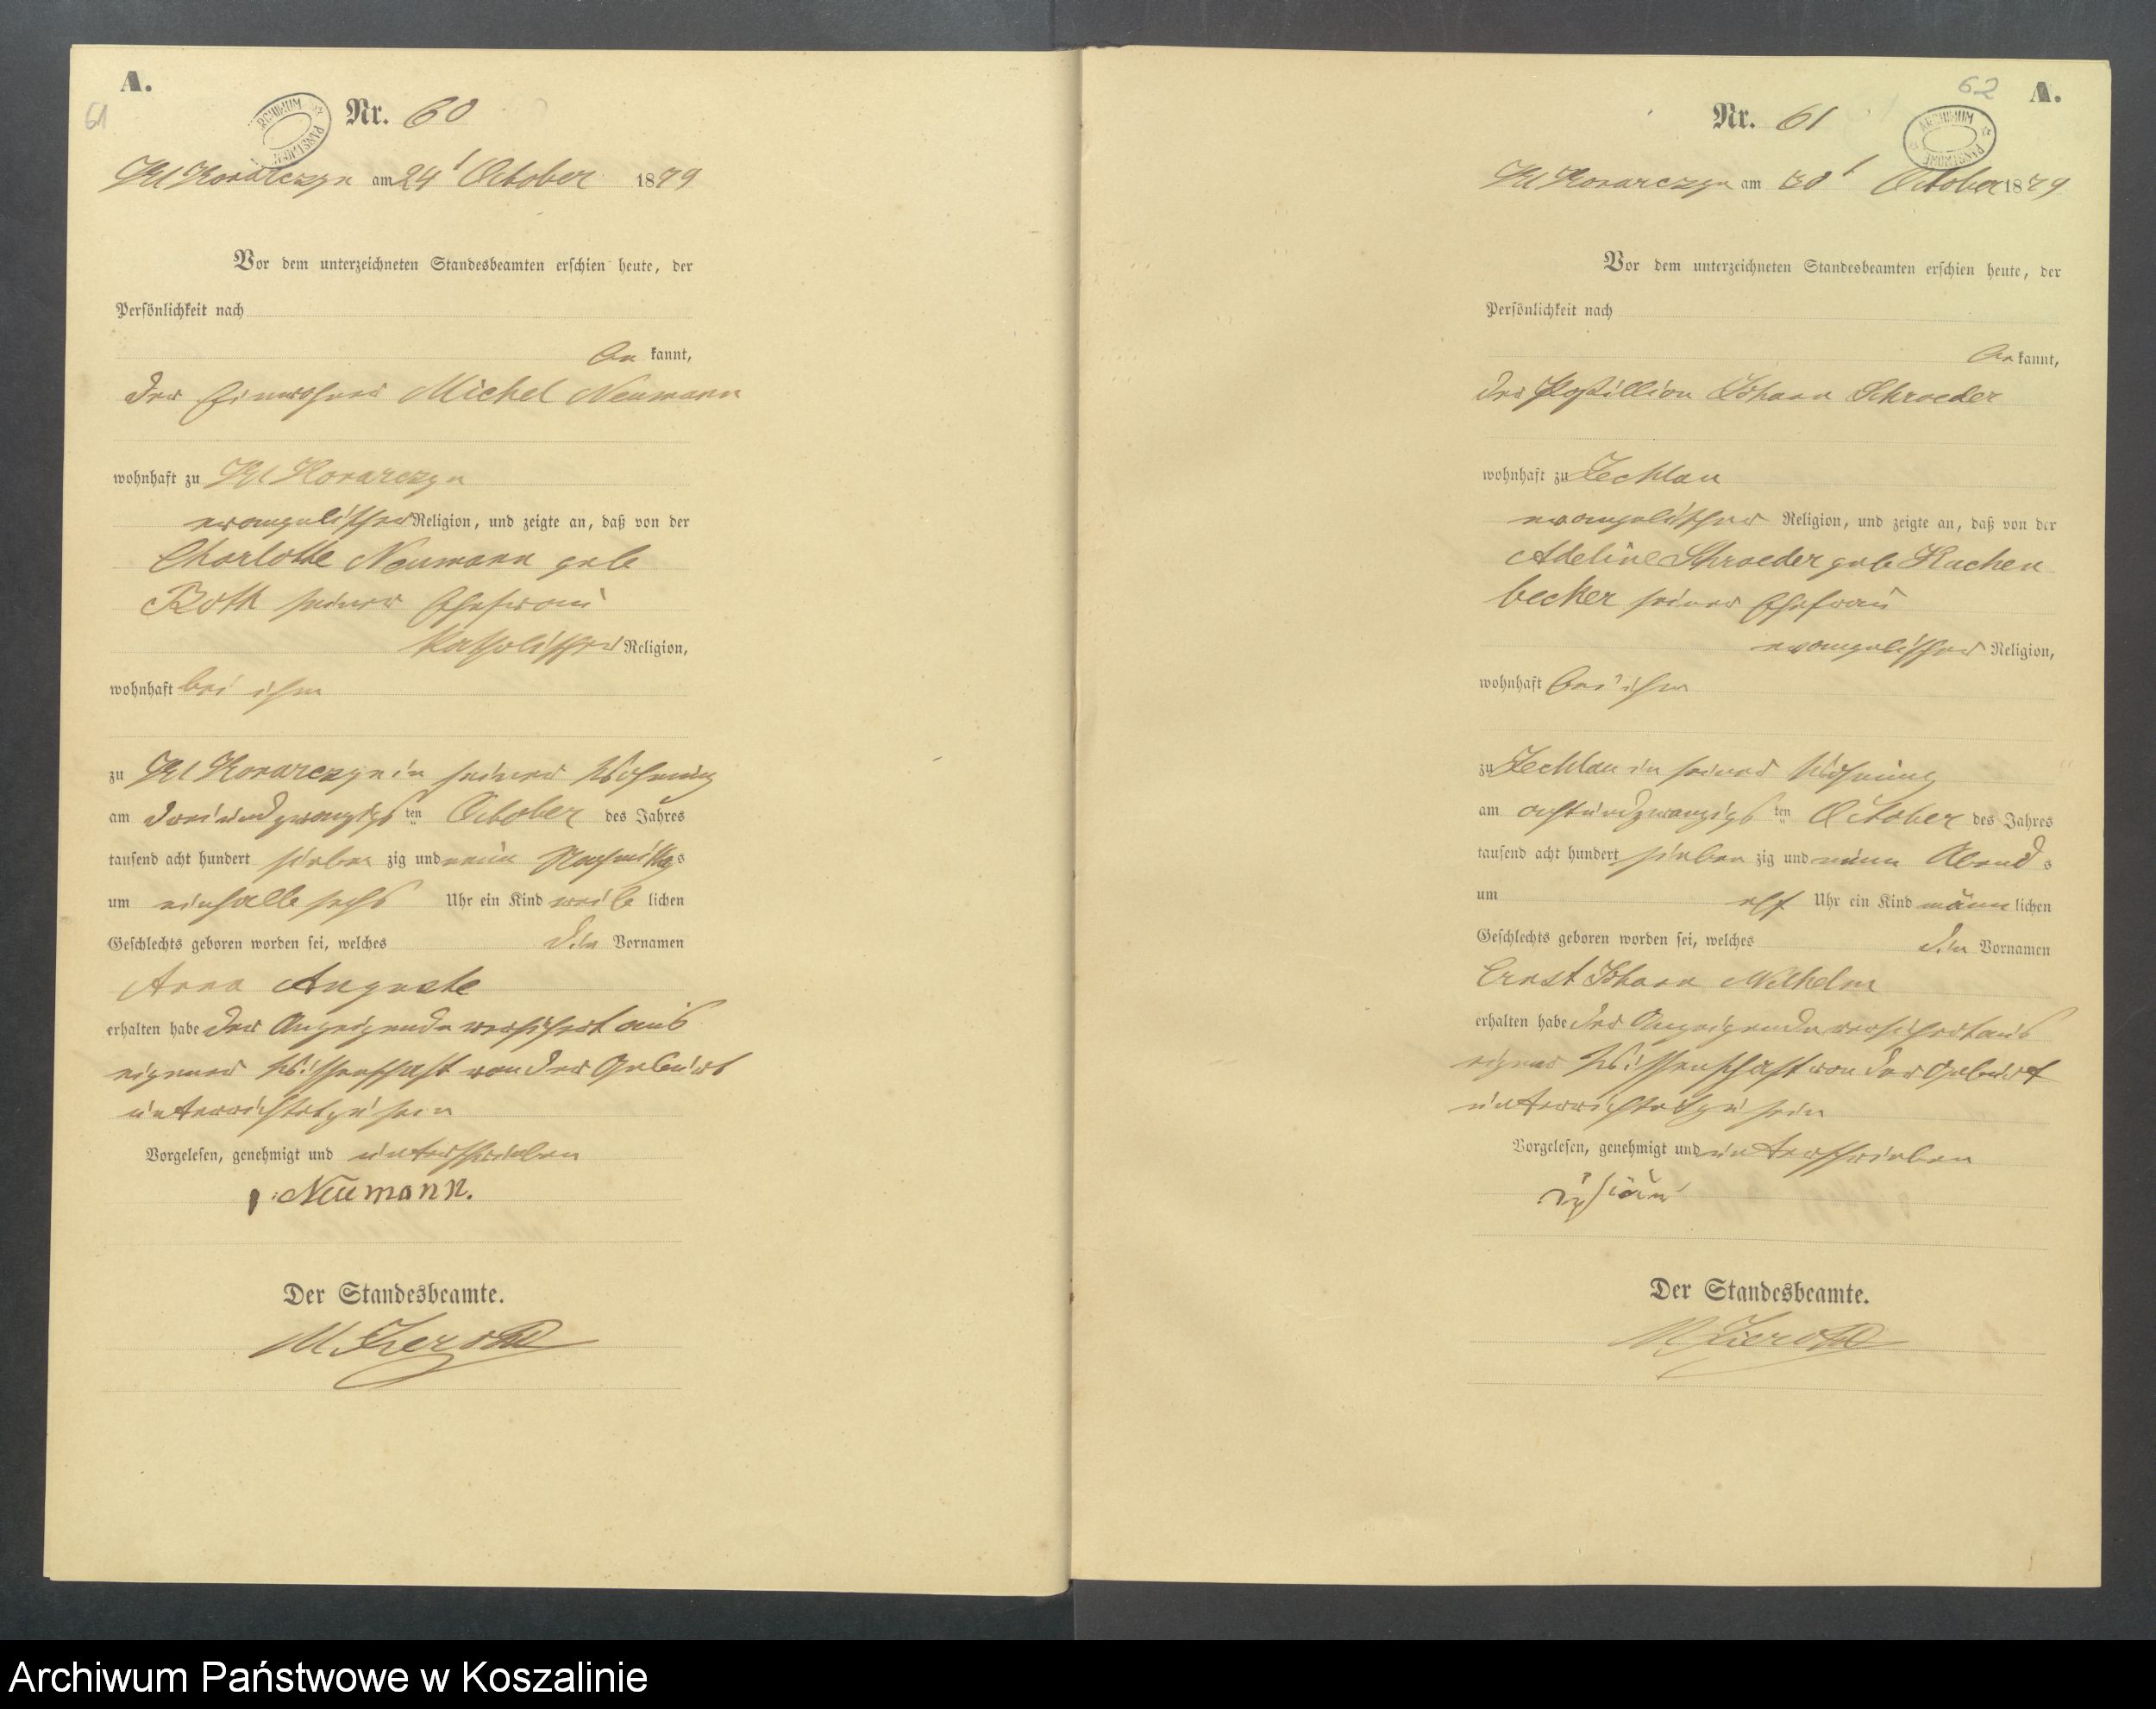 A.
61
ARCHIWUM PAŃSTWOWE
Nr. 60
Kl Konarczyn am 24t October 1879
Vor dem unterzeichneten Standesbeamten erschien heute, der
Persönlichkeit nach
be kannt,
der Einwohner Michel Neumann
wohnhaft zu Kl Konarczyn
evangelischer Religion, und zeigte an, daß von der
Charlotte Neumann geb
Roth seiner Ehefrau
katholischer Religion,
wohnhaft bei ihm
zu Kl Konarczyn in seiner Wohnung
am dreiundzwanzigsten October des Jahres
tausend acht hundert sieben zig und neun Nachmittags
um einhalb sechs Uhr ein Kind weib lichen
Geschlechts geboren worden sei, welches den Vornamen
Anna Auguste
erhalten habe der Anzeigende versichert aus
eigener Wissenschaft von der Geburt
unterrichtet zu sein
Vorgelesen, genehmigt und unterschrieben
Neumann.
Der Standesbeamte.
M
62
A.
ARCHIWUM PAŃSTWOWE
Nr. 61
Kl Konarczyn am 30t October 1879
Vor dem unterzeichneten Standesbeamten erschien heute, der
Persönlichkeit nach
be kannt,
der Postillion Johann Schroeder
wohnhaft zu Zechlau
evangelischer Religion, und zeigte an, daß von der
Adeline Schroeder geb Kuchen
becker seiner Ehefrau
evangelischer Religion,
wohnhaft bei ihm
zu Zechlau in seiner Wohnung
am achtundzwanzigsten October des Jahres
tausend acht hundert sieben zig und neun Abends
um elf Uhr ein Kind männ lichen
Geschlechts geboren worden sei, welches den Vornamen
Ernst Johann Wilhelm
erhalten habe der Anzeigende versichert aus
eigner Wissenschaft von der Geburt
unterrichtet zu sein
Vorgelesen, genehmigt und unterschrieben
Der Standesbeamte.
M
Archiwum Państwowe w Koszalinie